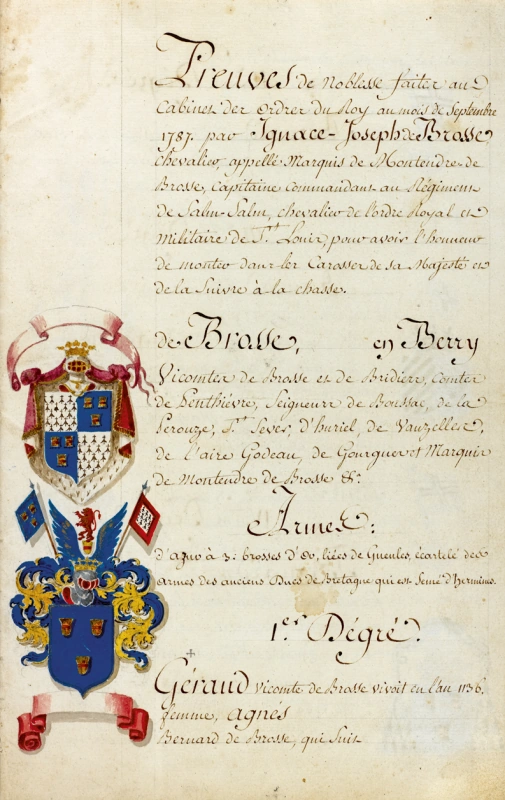 Preuves de Noblesse faites au
Cabinet des Ordres du Roy au mois de Septembre
1787. par Ignace-Joseph de Brosse,
chevalier, appellé Marquis de Montendre de
Brosse, Capitaine commandant au Régiment
de Salm-Salm, chevalier de l'ordre Royal et
militaire de St Louis, pour avoir l'honneur
de monter dans les Carosses de sa Majesté et
de la Suivre à la chasse.
de Brosse, en Berry
Vicomtes de Brosse et de Bridiers, Comtes
de Penthièvre, Seigneurs de Boussac, de la
Perouze, St Sévér, d'huriel, de Vauzelles,
de l'aire Godeau, de Gourgues et Marquis
de Montendre de Brosse &c.
Armes:
d'azur à 3: brosses d'Or, liées de Gueules, écartelé des
Armes des anciens Ducs de Bretagne qui est Semé d'hermines.
1er Dégré.
Géraud Vicomte de Brosse vivoit en l'an 1136.
femme, Agnés
Bernard de Brosse, qui Suit